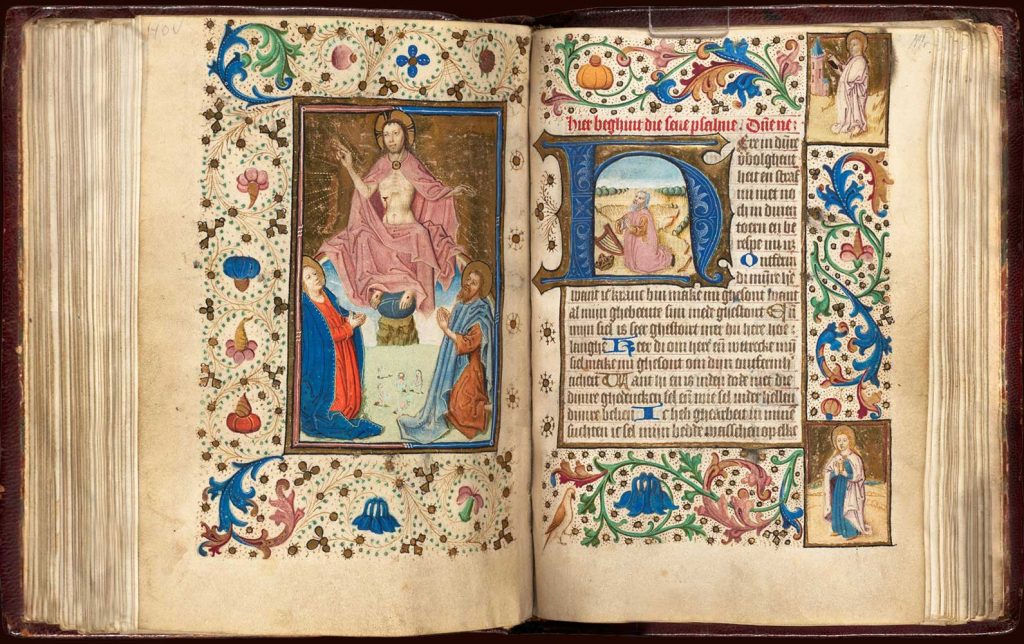 hier beghint die seue psalme. Dñe ne:
HEre in dijnre
v̄bolghent
heit en straf
mi niet no
ch in dinen
toern en be
respe mi nz
Ontferm
di mijnre he
want ic kranc bin make mi ghesont want
al mijn ghebeente sijn mede ghestoert Eñ
mijn siel is seer ghestoert mer du here hoe
langhe Keer di om here eñ mijn
siel make mi ghesont om dijn ontfermh
ticheit Want hi en is inder doot niet die
dijnre ghedencken sel eñ wie sel inder hellen
dijnre belien Ic heb ghearbeit in mine
suchten ic sel mijn bedde wasschen op elke